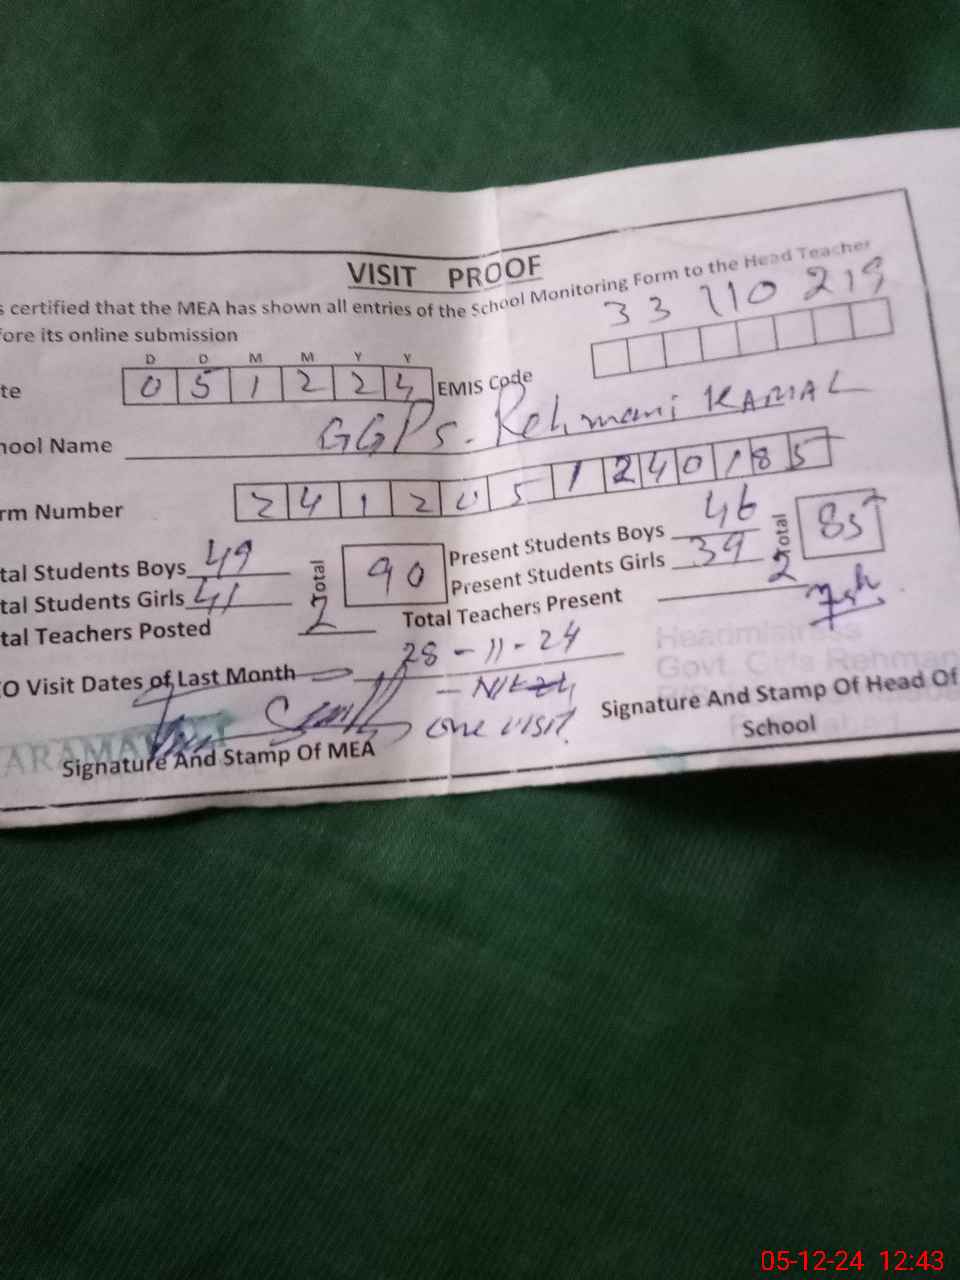 VISIT PROOF
s certified that the MEA has shown all entries of the School Monitoring Form to the Head Teacher
ore its online submission
33710219
D D M M Y Y
te 0 5 1 2 2 4 EMIS Code
hool Name GGPS. Rehmani KAMAL
rm Number 2 4 1 2 0 5 1 2 4 0 1 8 5
tal Students Boys 49 Total 90 Present Students Boys 46 Total 85
tal Students Girls 41 Present Students Girls 39
tal Teachers Posted 2 Total Teachers Present 2
O Visit Dates of Last Month 28-11-24
one visit
Headmistress
Govt. Girls Rehman
ARAMA
Signature And Stamp Of MEA
Signature And Stamp Of Head Of
School
05-12-24 12:43